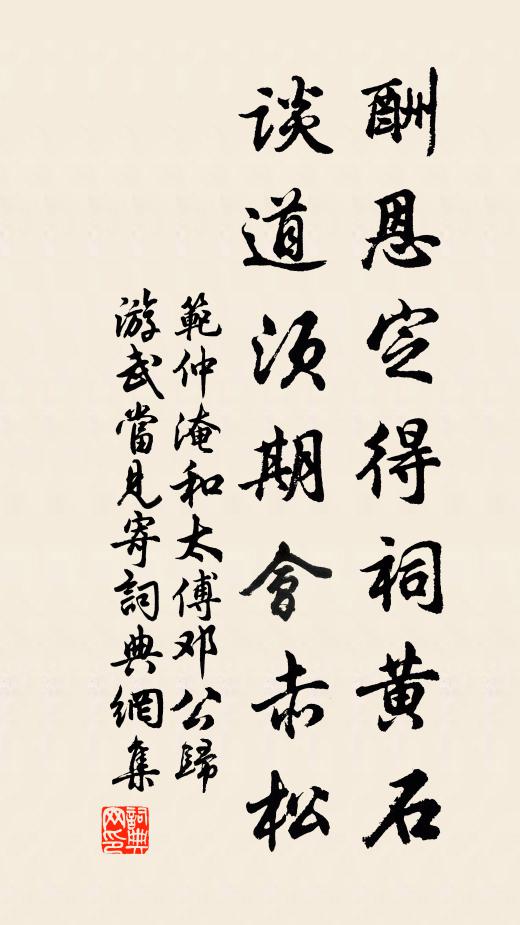 酬恩定得祠黄石
談道須期會赤松
範仲淹和太傅邓公歸
游武當見寄詞典網集
詞典
网印